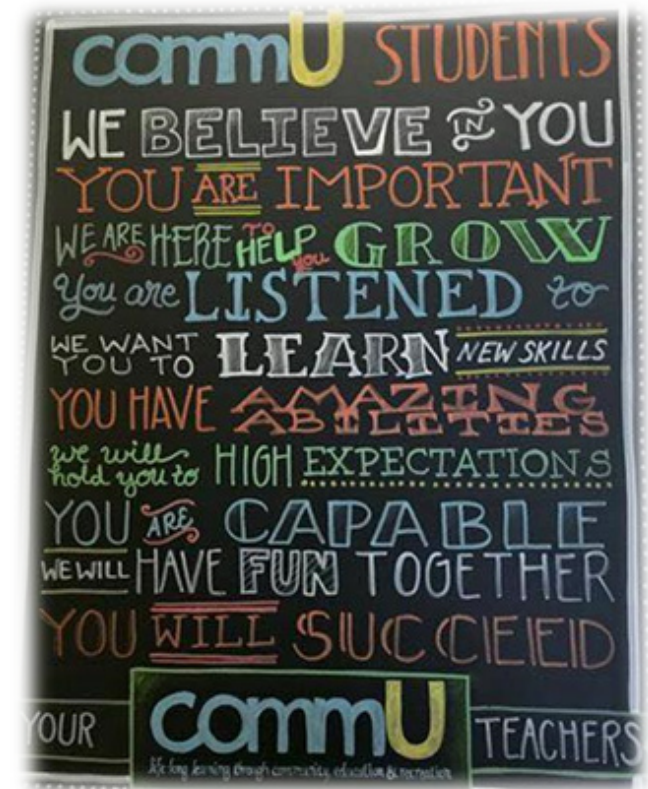 commU STUDENTS
WE BELIEVE IN YOU
YOU ARE IMPORTANT
WE ARE HERE TO HELP you GROW
You are LISTENED to
WE WANT YOU TO LEARN NEW SKILLS
YOU HAVE AMAZING ABILITIES
we will hold you to HIGH EXPECTATIONS
YOU ARE CAPABLE
WE WILL HAVE FUN TOGETHER
YOU WILL SUCCEED
YOUR commU TEACHERS
life long learning through community education & recreation